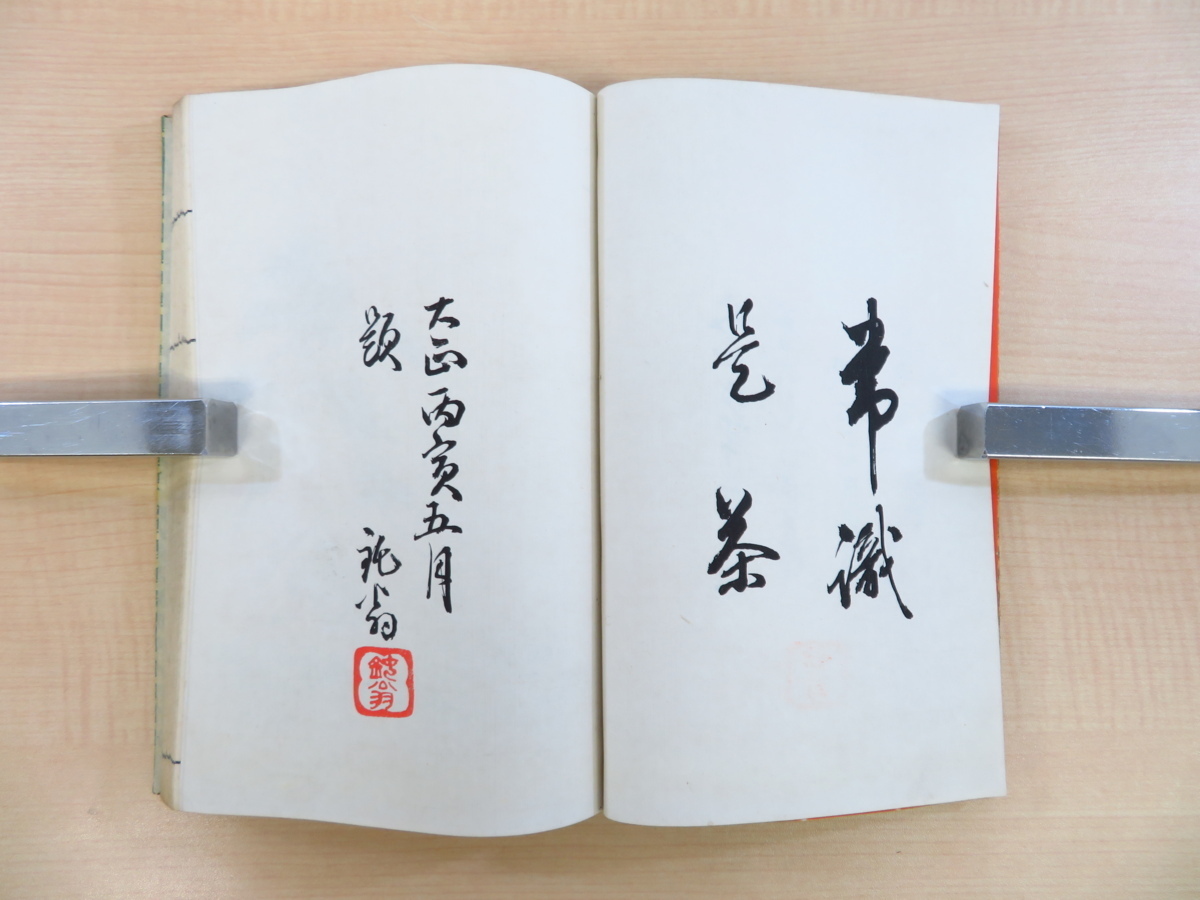 常識
是茶
大正丙寅五月
題 鈍翁
鈍翁